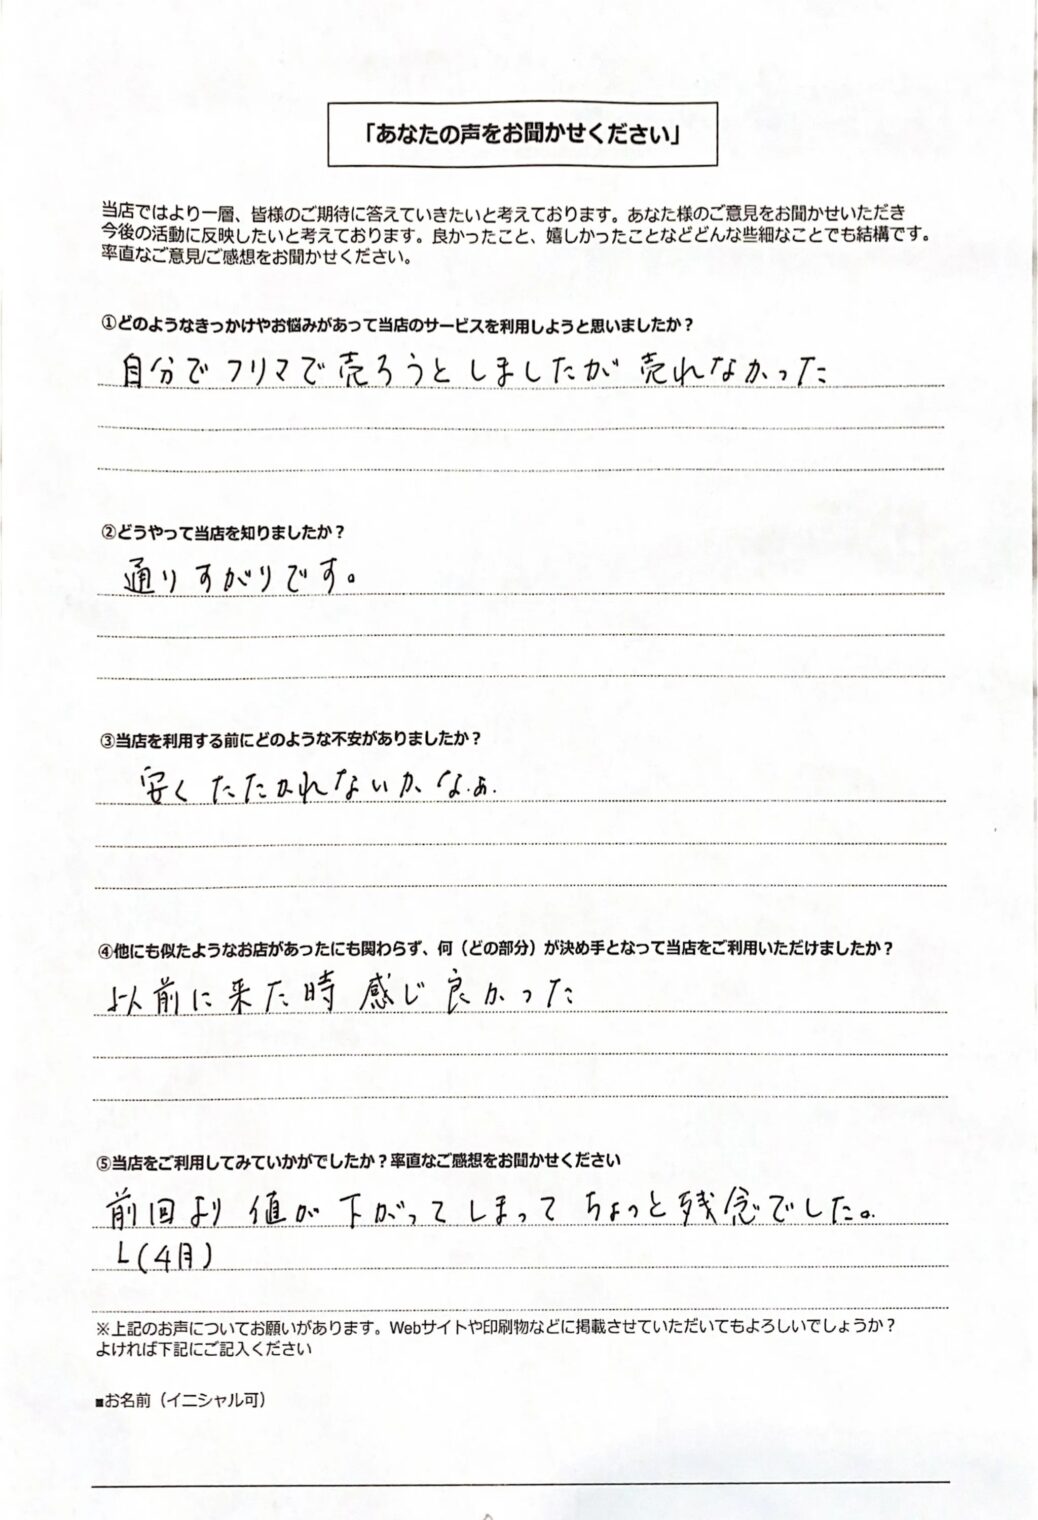 「あなたの声をお聞かせください」
当店ではより一層、皆様のご期待に答えていきたいと考えております。あなた様のご意見をお聞かせいただき
今後の活動に反映したいと考えております。良かったこと、嬉しかったことなどどんな些細なことでも結構です。
率直なご意見/ご感想をお聞かせください。
①どのようなきっかけやお悩みがあって当店のサービスを利用しようと思いましたか？
自分でフリマで売ろうとしましたが売れなかった
②どうやって当店を知りましたか？
通りすがりです。
③当店を利用する前にどのような不安がありましたか？
安くたたかれないかなぁ.
④他にも似たようなお店があったにも関わらず、何（どの部分）が決め手となって当店をご利用いただけましたか？
以前に来た時感じ良かった
⑤当店をご利用してみていかがでしたか？率直なご感想をお聞かせください
前回より値が下がってしまってちょっと残念でした。
└(4月)
※上記のお声についてお願いがあります。Webサイトや印刷物などに掲載させていただいてもよろしいでしょうか？
よければ下記にご記入ください
■お名前（イニシャル可）